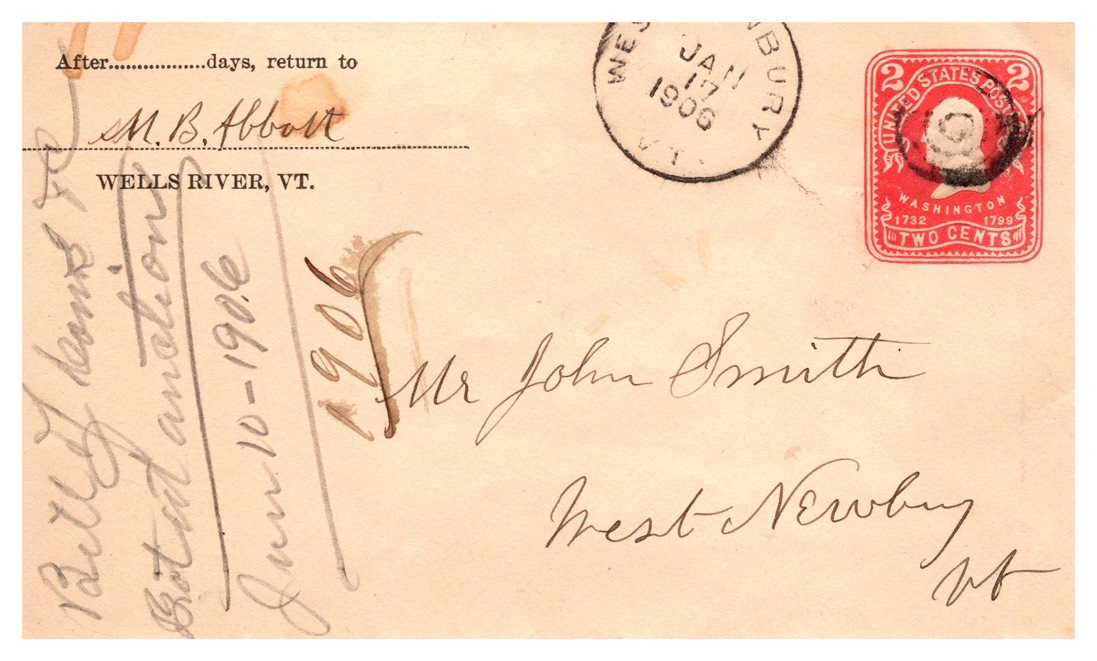 After.................days, return to
M. B. Abbott
WELLS RIVER, VT.
JAN
17
1906
2 UNITED STATES 2
WASHINGTON
1732 1799
TWO CENTS
Bill of
at auction
10-1906
1906
Mr John Smith
West Newbury
Vt